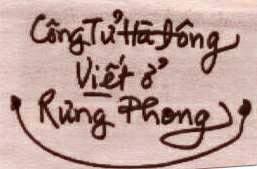 Công Tử Hà Đông
Viết ở
Rừng Phong